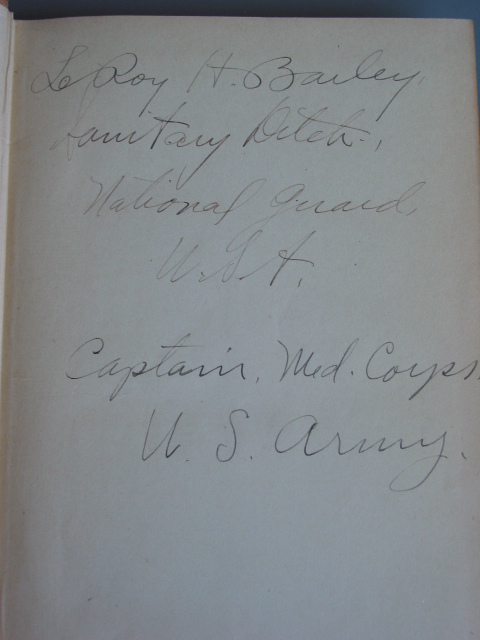 LeRoy H. Bailey,
Sanitary Ditch.,
National Guard,
U.S.A.
Captain, Med. Corps
U. S. Army.